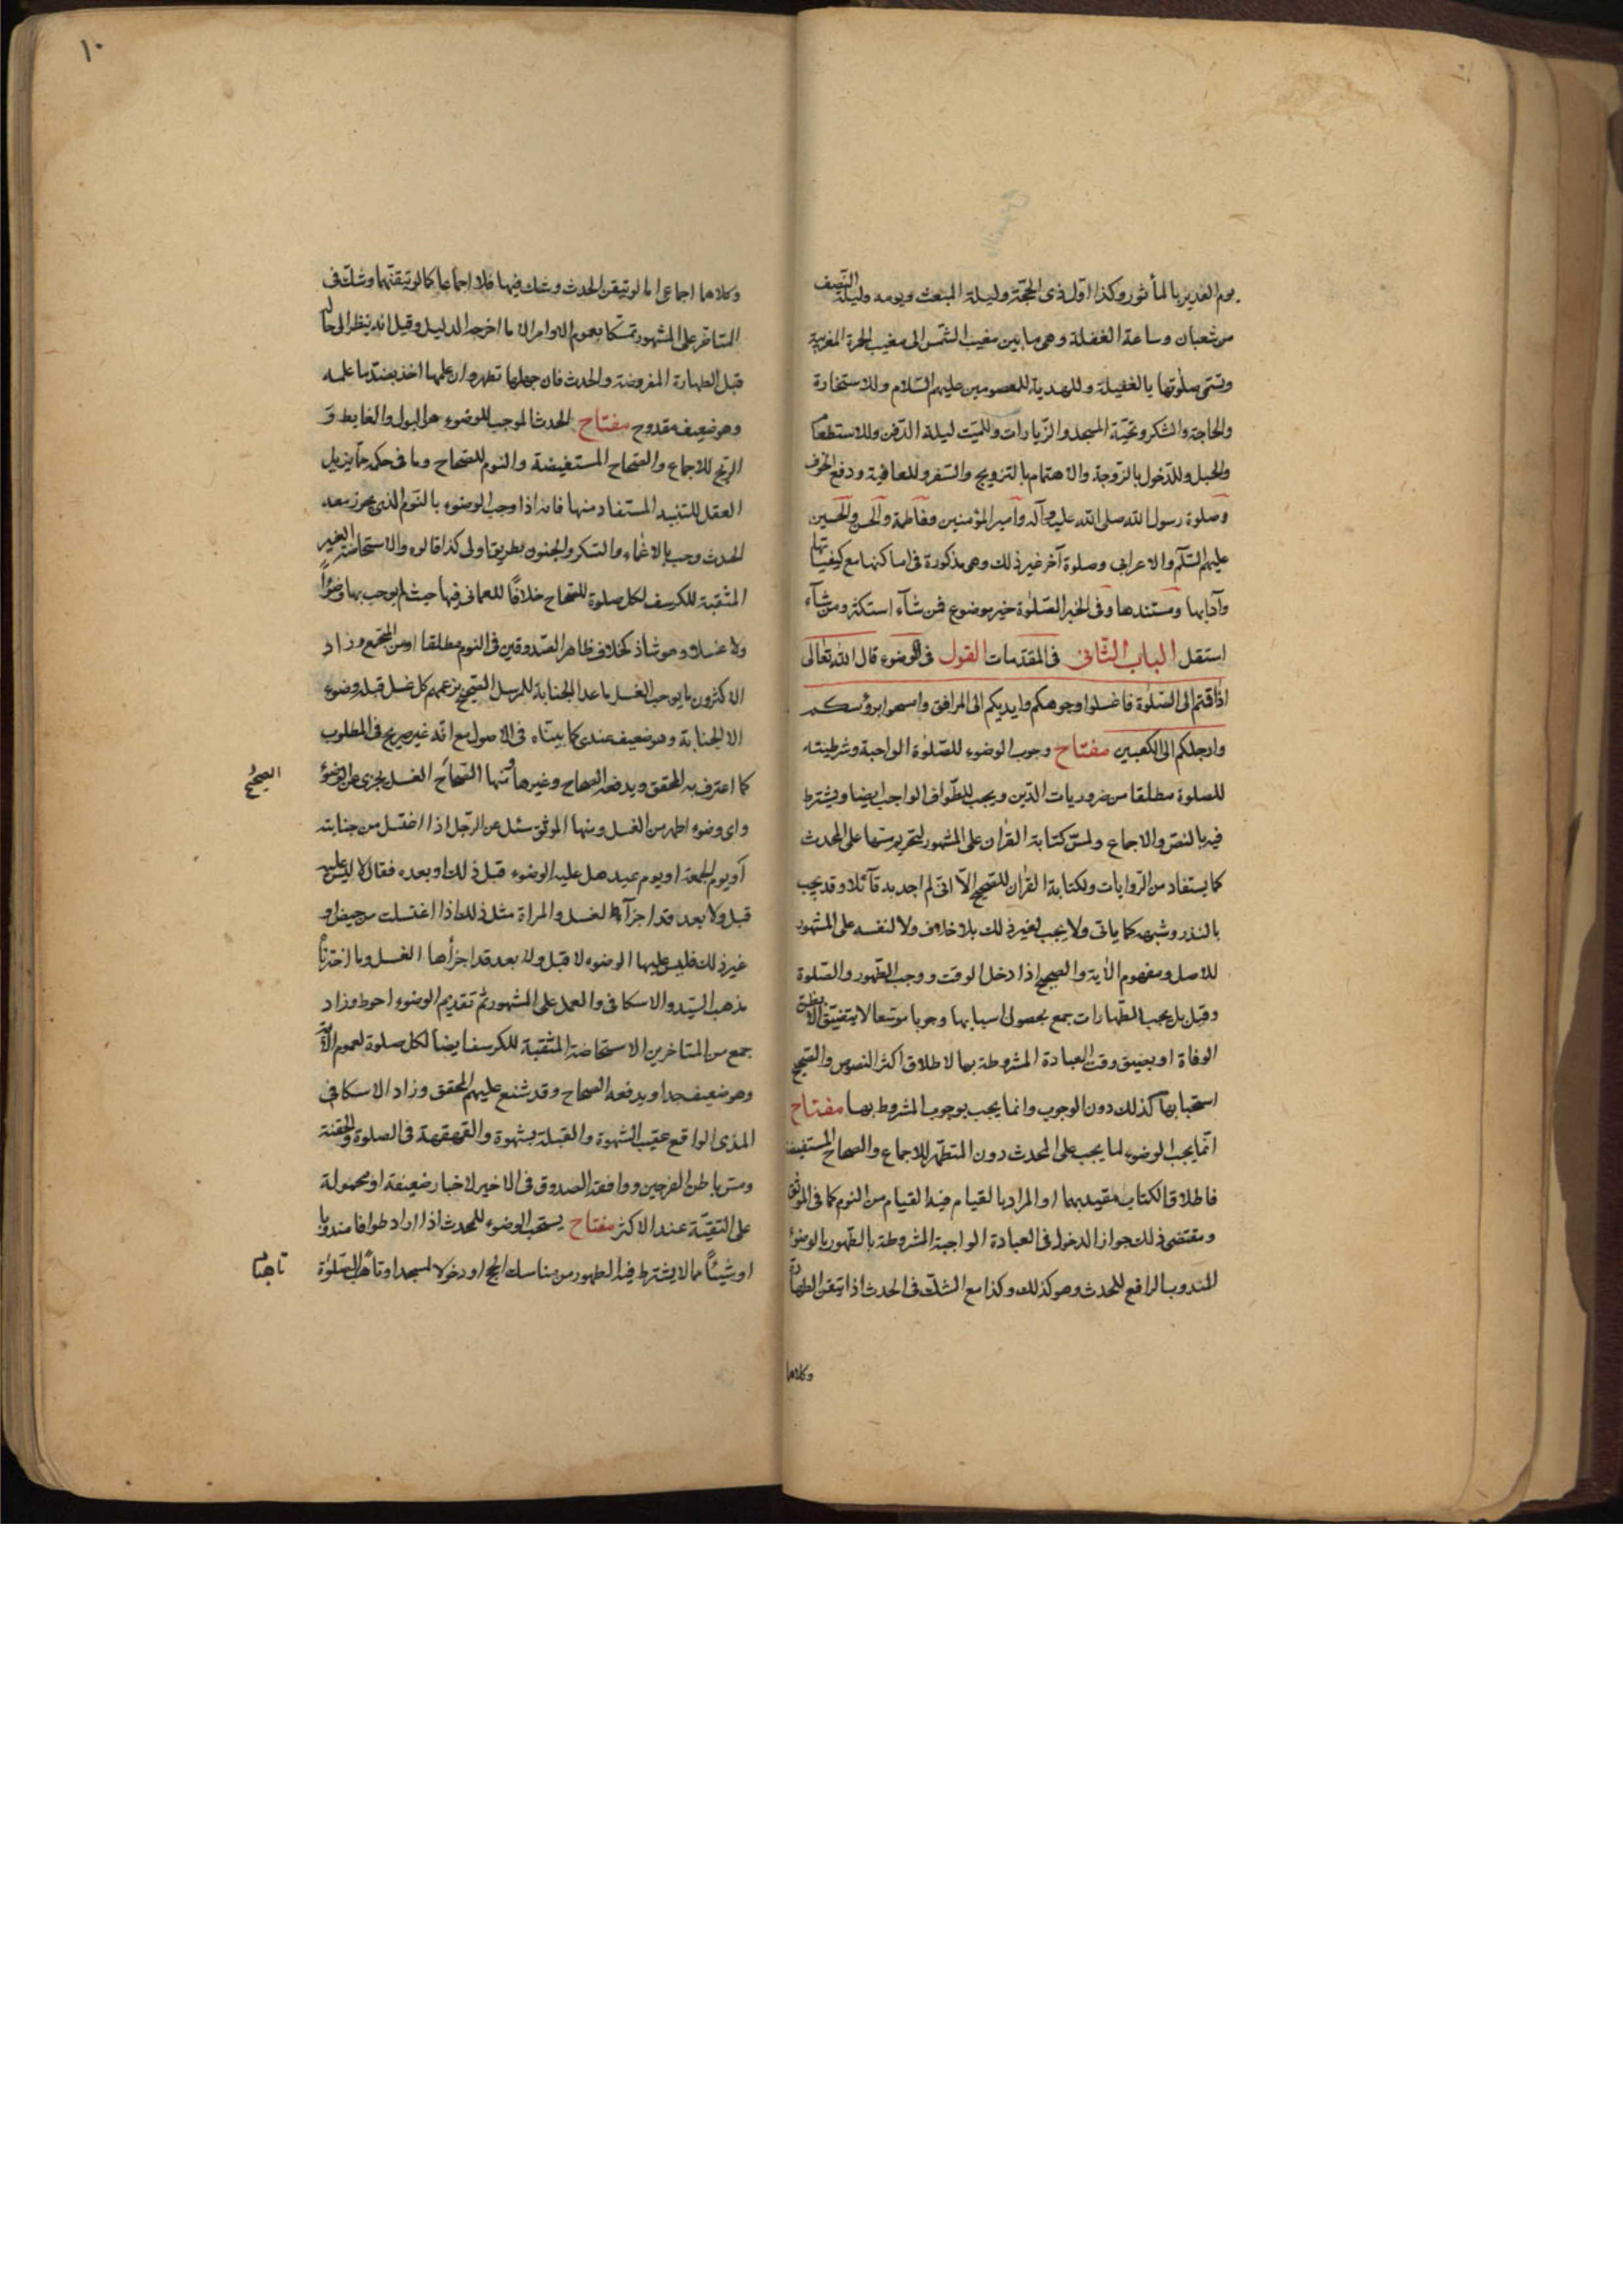 يوم الغدير بالمأثور وكذا اول ذى الحجّة وليلة المبعث ويومه وليلة النّصف
من شعبان وساعة الغفلة وهى ما بين مغيب الشّمس الى مغيب الحمرة المغربية
وتسمّى صلوتها بالغفيلة وللهدية للمعصومين عليهم السّلام وللاستخارة
والحاجة والشكر وتحيّة المسجد والزّيارات وللميّت ليلة الدّفن وللاستطعام
والحبل وللدّخول بالزّوجة والاهتمام بالتزويج والسّفر وللعافية ودفع الخوف
وصلوة رسول الله صلى الله عليه وآله وامير المؤمنين وفاطمة والحسن والحسين
عليهم السّلم والاعرابى وصلوة آخر غير ذلك وهى مذكورة فى اماكنها مع كيفياتها
وآدابها ومستندها وفى الخبر الصّلوة خير موضوع فمن شآء استكثر ومن شآء
استقل الباب الثّانى فى المقدّمات القول فى الوضوء قال الله تعالى
اذا قمتم الى الصّلوة فاغسلوا وجوهكم وايديكم الى المرافق وامسحوا برؤسكم
وارجلكم الى الكعبين مفتاح وجوب الوضوء للصّلوة الواجبة وشرطيته
للصلوة مطلقا من ضروريات الدّين ويجب للطّواف الواجب ايضا ويشترط
فيه بالنصّ والاجماع ولمسّ كتابة القران على المشهور لتحريم مسّها على المحدث
كما يستفاد من الرّوايات ولكتابة القران للصّحيح الّا انّى لم اجد به قآئلا وقد يجب
بالنذر وشبهه كما ياتى ولا يجب لغير ذلك بلا خلاف ولا لنفسه على المشهور
للاصل ومفهوم الآية والصحيح اذا دخل الوقت ووجب الطّهور والصّلوة
وقيل بل يجب الطّهارات جمع بحصول اسبابها وجوبا موسّعا لا يتضيّق الّا بظنّ
الوفاة او بضيق وقت العبادة المشروطة بها لاطلاق اكثر النصوص والصّحيح
استحبابها كذلك دون الوجوب وانما يجب بوجوب المشروط بها مفتاح
انّما يجب الوضوء لما يجب على المحدث دون المتطهّر للاجماع والصحاح المستفيضة
فاطلاق الكتاب مقيد بهما او المراد بالقيام فيه القيام من النوم كما فى الموثق
ومقتضى ذلك جواز الدخول فى العبادة الواجبة المشروطة بالطّهور بالوضوء
المندوب الرافع للحدث وهو كذلك وكذا مع الشكّ فى الحدث اذا تيقن الطهارة
وكلاهما
١٠
وكلاهما اجماعى اما لو تيقن الحدث وشك فيها فلا اجماعا كما لو تيقنهما وشكّ فى
المتاخر على المشهور تمسّكا بعموم الاوامر الا ما اخرجه الدليل وقيل انه ينظر الى حاله
قبل الطهارة المفروضة والحدث فان جهلها تطهر وان علمها اخذ بضدّ ما علمه
وهو ضعيف مقدوح مفتاح الحدث الموجب للوضوء هو البول والغايط و
الريح للاجماع والصّحاح المستفيضة والنوم للصّحاح وما فى حكمه ممّا يزيل
العقل للتنبيه المستفاد منها فانه اذا وجب الوضوء بالنّوم الذى يجوز معه
الحدث وجب بالاغماء والسكر والجنون بطريق اولى كذا قالوه والاستحاضة الغير
المثقبة للكرسف لكل صلوة للصّحاح خلافًا للعمانى فيها حيث لم يوجب بها وضوءًا
ولا غسلا وهو شاذ كخلاف ظاهر الصّدوقين فى النوم مطلقا او من المجتمع وزاد
الاكثرون ما يوجب الغسل ما عدا الجنابة للمرسل الصّحيح بزعمهم كل غسل قبله وضوء
الا الجنابة وهو ضعيف عندى كما بيناه فى الاصول مع انّه غير صريح فى المطلوب
كما اعترف به المحقق ويدفعه الصحاح وغيرها فمنها الصّحاح الغسل يجزى عن الوضوء
الصحيح
واى وضوء اطهر من الغسل ومنها الموثق سئل عن الرّجل اذا اغتسل من جنابته
او يوم الجمعة او يوم عيد هل عليه الوضوء قبل ذلك او بعده فقال لا ليس عليه
قبل ولا بعد قد اجزأه الغسل والمراة مثل ذلك اذا اغتسلت من حيض او
غير ذلك فليس عليها الوضوء لا قبل ولا بعد قد اجزأها الغسل وما اخترناه
مذهب السّيّد والاسكافى والعمل على المشهور ثم تقديم الوضوء احوط وزاد
جمع من المتاخرين الاستحاضة المثقبة للكرسف ايضا لكل صلوة لعموم الآية
وهو ضعيف جدا ويدفعه الصحاح وقد شنع عليهم المحقق وزاد الاسكافى
المذى الواقع عقيب الشهوة والقبلة بشهوة والقهقهة فى الصلوة والحقنة
ومسّ باطن الفرجين ووافقه الصدوق فى الاخير لاخبار ضعيفة او محمولة
على التقيّة عند الاكثر مفتاح يستحب الوضوء للمحدث اذا اراد طوافا مندوبا
او شيئاً مما لا يشترط فيه الطهور من مناسك الحج او دخولا لمسجد او تأهّب الصّلوة
تاهبا